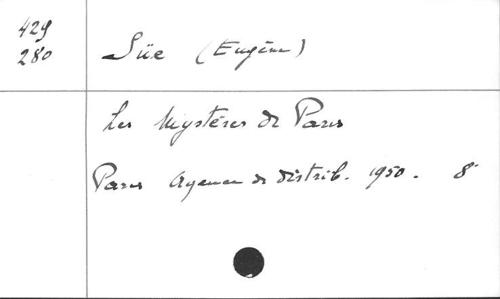 429
280
Süe (Eugène)
Les Mystères de Paris
Paris Agence de distrib. 1950. 8°